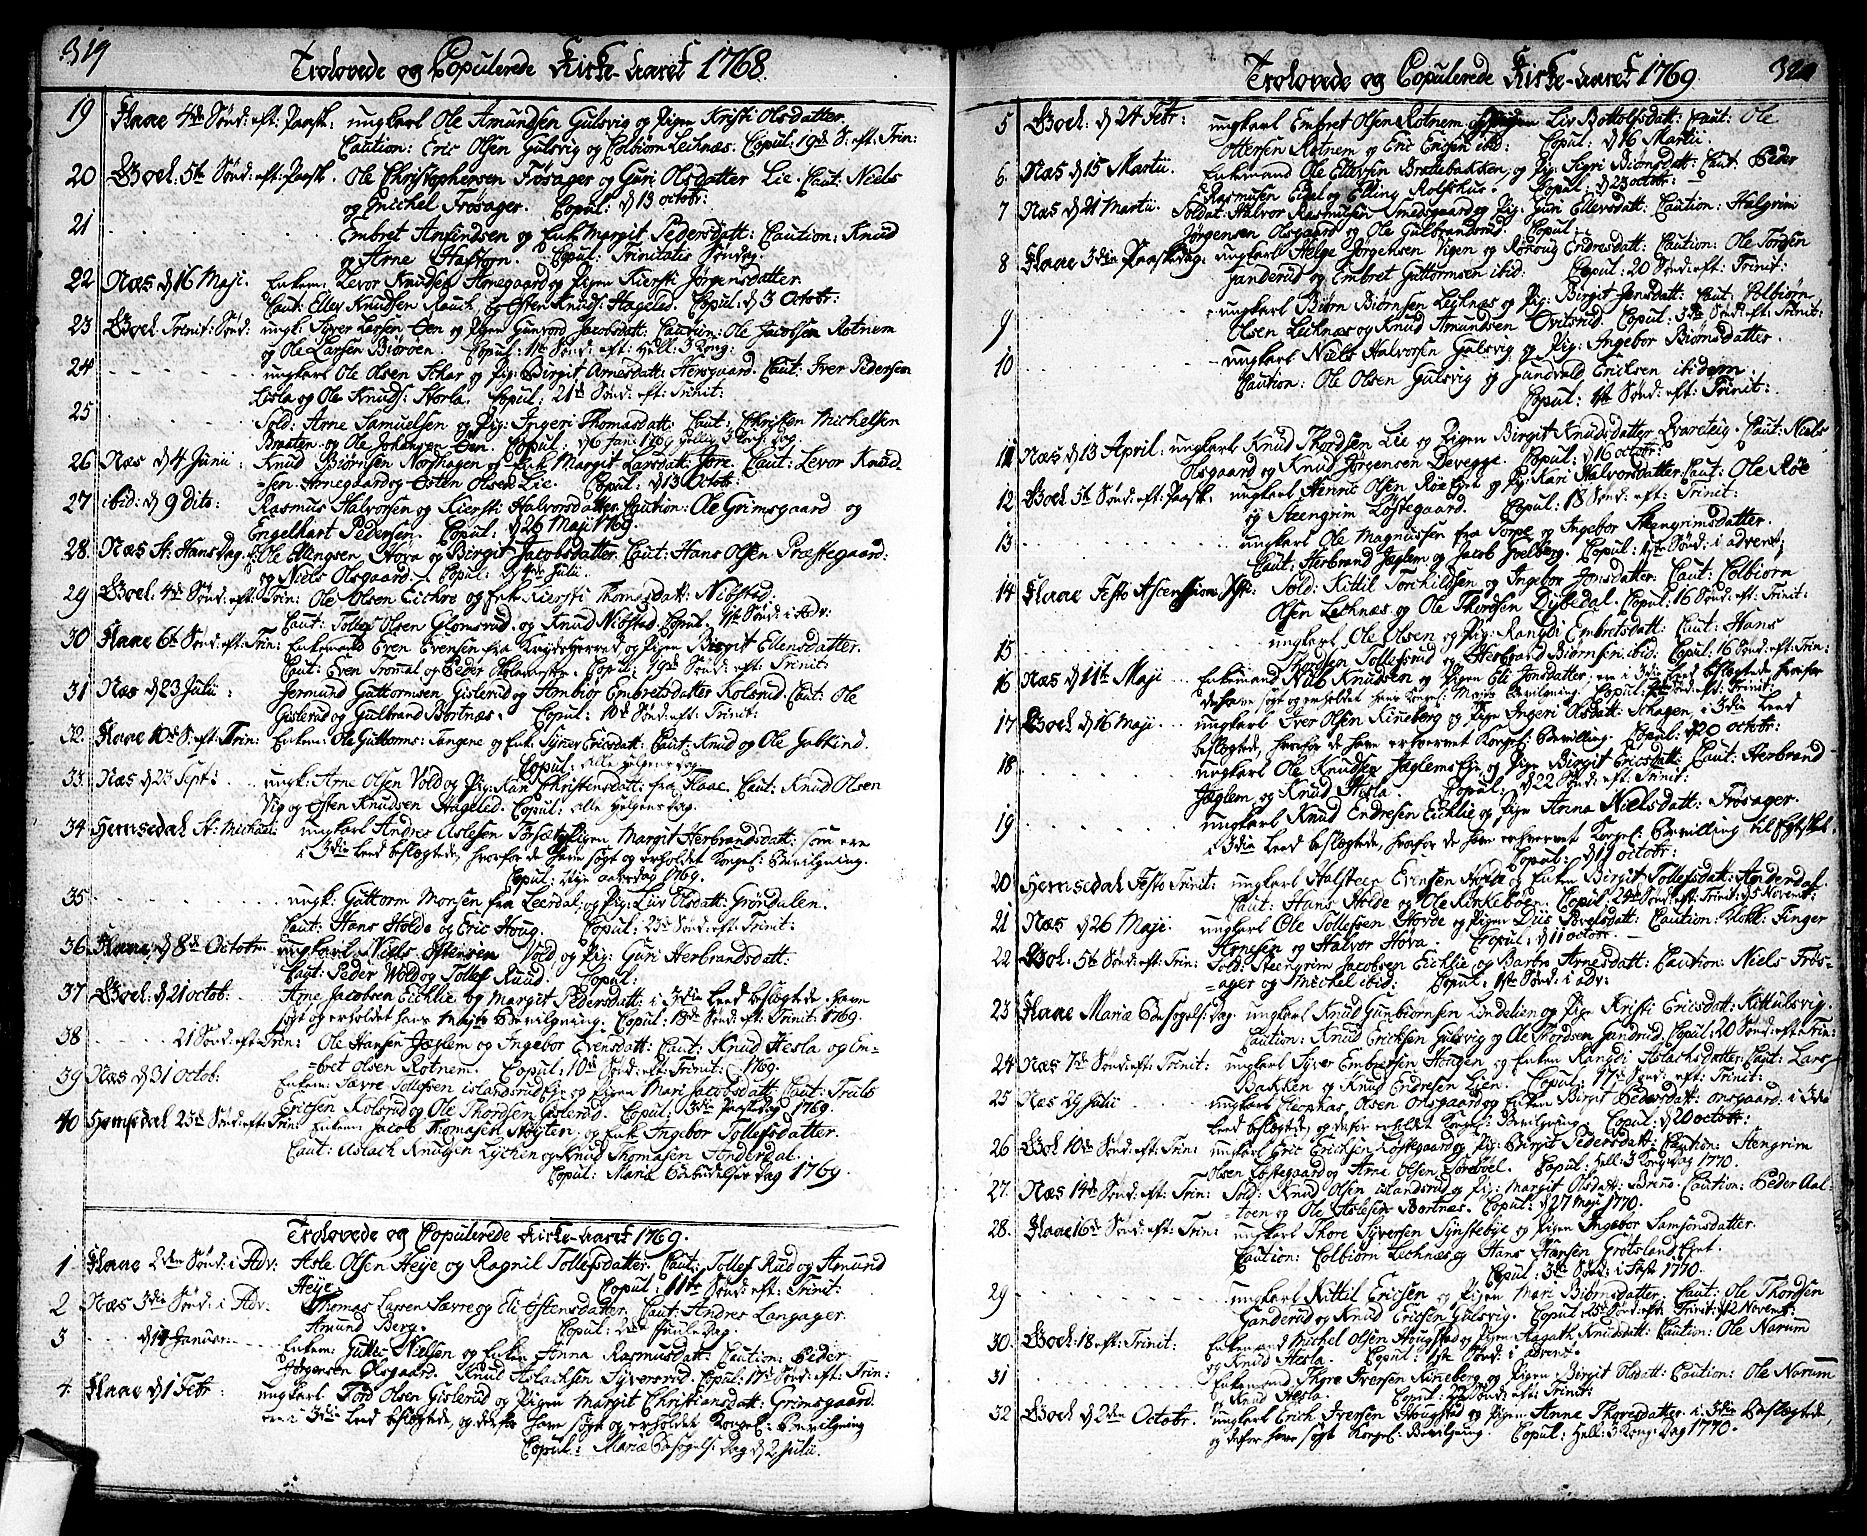 319
Trolovede og Copulerede Kirke-aaret 1768.
19 Flaae 4de Sønd: eft: Paask: ungkarl Ole Amundsen Gulsvig og Pigen Kristi Olsdatter.
Caution: Eric Olsen Gulsvig og Colbiorn Leknæs. Copul: 19de S: eft: Trin:
20 Goel: 5te Sønd: eft: Paask. Ole Christophersen Frøsager og Guri Olsdatter Lie. Caut: Niels
og Michel Frøsager. Copul: d 13 octobr:
21 Embret Amundsen og Enk: Margit Pedersdatt: Caution: Knud
og Arne Haftorn. Copul: Trinitatis Søndag.
22 Næs d 16 Maji. Enkem: Levor Knudsen Arnegaard og Pigen Kiersti Jørgensdatter
Caut: Ellev Knudsen Rauk, og Østen Knuds: Hageled Copul: d 3 Octobr:
23 Goel: Trinit: Sønd: ungk: Syver Larsen Øen og Pigen Gunvord Jacobsdatt: Caution: Ole Jacobsen Rotnem
og Ole Larsen Biørøen. Copul: 1ste Sønd: eft: Hell: 3 Kong:
24 ungkarl Ole Olsen Schar og Pig: Birgit Arnesdatt: Hersgaard. Caut: Iver Pedersen
Lisla og Ole Knuds: Storla. Copul: 21de Sønd: eft: Trinit:
25 Sold: Arne Samuelsen og Pig: Ingeri Thomasdatt: Caut: Christen Michelsen
Braaten og Ole Johansen Øen. Copul: d 6 Jan: 1769 hellig 3 Kong: dag.
26 Næs d 4 Junii: Knud Biørnsen Nordhagen og Enk: Margit Larsdatt: Jore. Caut: Levor Knud-
=sen Arnegaard og Østen Olsen Lie. Copul: d 13 Octobr:
27 ibid: d 9 Dito: Rasmus Halvorsen og Kiersti Halvorsdatter Caution: Ole Grimsgaard og
Engelhart Pedersen. Copul: d 26 Maji 1769.
28 Næs St: Hans Dag. Ole Ellingsen Hova og Birgit Jacobsdatter Caut: Hans Olsen Præstegaard:
og Niels Olsgaard. Copul: d 4de Julii.
29 Goel: 4de Sønd: eft: Trin: Ole Olsen Eichre og Enk: Kiersti Thomasdatt: Nibstad:
Caut: Tollef Olsen Glomsrud og Knud Nibstad Copul: 1ste Sønd: i Adv:
30 Flaae 6te Sønd: eft: Trin: Enkemand Even Evensen fra Krydsherred og Pigen Birgit Ellensdatter.
Caut: Even Tromal og Peder Skolemester. Copul: 19de Sønd: eft: Trinit:
31 Næs d 23 Julii: Jermund Guttormsen Gislerud og Ambiør Embretsdatter Kolsrud: Caut: Ole
Gislerud og Gulbrand Bortnæs. Copul: 10de Sønd: eft: Trinit:
32. Flaae 10de S: eft: Trin: Enkem: Ole Guttorms: Tangene og Enk: Synev Ericsdatt: Caut: Knud og Ole Jalkind.
Copul: Alle helgens dag.
33. Næs d 23 Sept: ungk: Arne Olsen Vold og Pig: Kari Christensdatt: fra Flaae. Caut: Knud Olsen
Vig og Østen Knudsen Hageled. Copul: alle helgens dag.
34 Hemsedal St: Michaeli: ungkarl Andres Aslesen og Pigen Margit Herbrandsdatt: som ere
i 3die Leed beslægtede, hvorfor de have søgt og erholdet Kongel: Bevilgning.
Copul: Nye aarsdag 1769.
35 ungk: Guttorm Monsen fra Leerdal og Pig: Liv Olsdatt: Grøndalen.
Caut: Hans Holde og Eric Houg. Copul: 23de Sønd: eft: Trinit:
36 Flaae d 8de Octobr ungkarl Niels Østensen Vold og Pig: Guri Herbrandsdatt:
Caut: Peder Vold og Tollef Ruud. Copul:
37 Goel: d 21 octob: Arne Jacobsen Eichlie og Margit Pedersdatt: i 3die Leed beslægtede, have
søgt og erholdet hans Mayts Bevilgning. Copul: 18de Sønd: eft: Trinit: 1769.
38 21 Sønd: eft: Trin: Ole Hansen Jæglem og Ingebor Evensdatt: Caut: Knud Hesla og Em=
=bret Olsen Rotnem. Copul: 10de Sønd: eft: Trinit: 1769.
39 Næs d 31 Octob: Enkem: Sævre Tollefsen islandsrud Eje og Pigen Mari Jacobsdatt: Caut: Truls
Ericsen Kolsrud og Ole Thordsen Gislerud. Copul: 3die Paaskedag 1769.
40 Hemsedal 23de Sønd: eft: Trin: Enkem: Jacob Thomasen Nøyten, og Enk: Ingebor Tollefsdatter.
Caut: Aslach Knudsen Lychen og Knud Thomasen Tonderdal.
Copul: Mariæ Bebudelses Dag 1769.
Trolovede og Copulerede Kirke-aaret 1769.
1 Flaae 2den Sønd: i Adv: Asle Olsen Heye og Ragnil Tollefsdatter. Caut: Tollef Rud og Amund
Heye. Copul: 11te Sønd: eft: Trinit:
2 Næs 3die Sønd: i Adv: Thomas Larsen Sævre og Eli Østensdatter. Caut: Andres Langager.
Amund Berg. Copul: 2den Juule Dag.
3 d 14 Januar: Enkem: Gutter Nielsen og Enken Anna Rasmusdatt: Caution: Peder
Jørgensen Olsgaard. Knud Aslachsen Syversrud. Copul: 17de Sønd: eft: Trin:
4 Flaae d 1 Febr: ungkarl Tord Olsen Gislerud og Pigen Margit Christiansdatt: Grimsgaard.
ere i 3die Leed beslægtede, og derfor have søgt og erholdet Kongel: Bevilgning
Copul: Mariæ Besøgels: Dag d 2 Julii.
320
Trolovede og Copulerede Kirke-aaret 1769
5 Goel: d 24 Febr: ungkarl Embret Olsen Rotnem og Pigen Liv Bottolfsdatt: Caut: Ole
Ottersen Rotnem og Eric Ericsen ibid: Copul: d 16 Martii
6. Næs d 15 Martii. Enkemand Ole Ellevsen Bratebakken og Pig: Sigri Biørnsdatt: Caut: Peder
Rasmusen Eidal og Elling Rolfshus. Copul: d 23 octobr:
7 Næs d 21 Martii. Soldat: Halvor Rasmusen Smedsgaard og Pig: Guri Ellevsdatt: Caution: Halgrim
Jørgensen Olsgaard og Ole Gulbrandsrud. Copul:
8 Flaae 3die Paaskedag: ungkarl Helge Jørgensen Vigen og Rønnoug Endresdatt: Caution: Ole Tordsen
Ganderud og Embret Guttormsen ibid: Copul: 20 Sønd: eft: Trinit:
9 ungkarl Biørn Biørnsen Leknæs og Pig: Birgit Jonsdatt: Caut: Colbiørn
Olsen Leknæs og Knud Amundsen Qvitsrud. Copul: 3de Sønd: eft: Trinit:
10 ungkarl Niels Halvorsen Gulsvig og Pig: Ingebor Biørnsdatter.
Caution: Ole Olsen Gulsvig og Gundvald Ericksen ibidem.
Copul: 1ste Sønd: eft: Trinit:
11 Næs d 13 April. ungkarl Knud Thordsen Lie og Pigen Birgit Knudsdatter Qvarteig. Caut: Niels
Olsgaard og Knud Jørgensen Devegge. Copul: d 16 octobr:
12 Goel 5te Sønd: eft: Paask. ungkarl Henric Olsen Røe Eje og Pig: Kari Halvorsdatter Caut: Ole Røe
og Steengrim Løstegaard. Copul: 18 Sønd: eft: Trinit:
13 ungkarl Ole Magnussen fra Torpe og Ingebor Steengrimsdatter.
Caut: Herbrand Jæglem og Jacob Golberg. Copul: 1ste Sønd: i advent:
14 Flaae Festo Ascension: Chr: Sold: Kittil Torkildsen og Ingebor Jonsdatter: Caut: Colbiørn
Olsen Leknæs og Ole Thordsen Dybedal. Copul: 16 Sønd: eft: Trinit:
15 ungkarl Ole Olsen og Pig: Rangdi Embretsdatt: Caut: Hans
Tordsen Tollefsrud og Herbrand Biørnsen ibid: Copul: 16 Sønd: eft: Trin:
16 Næs d 11te Maji Enkemand Nils Knudsen og Pigen Eli Jonsdatter, ere i 3die Leed beslægtede hvorfor
de have søgt og erholdet hans Kongel: Mayts Bevilgning. Copul: Sønd: eft: Trinit:
17 Goel d 16 Maji ungkarl Iver Olsen Rineberg og Pigen Ingeri Olsdatt: Schagen, i 3die Leed
beslægtede, hvorfor de have erhvervet Kongel: Bevilling. Copul: d 20 octobr:
18 ungkarl Ole Knudsen Jæglems Eje, og Pigen Birgit Ericsdatt: Caut: Herbrand
Jæglem og Knud Hesla. Copul: d 22 Sønd: eft: Trinit:
19 ungkarl Knud Endresen Eichlie og Pigen Anna Nielsdatt: Frøsager.
i 3die Leed beslægtede, hvorfor de have erhvervet Kongel: Bevilling til Egteskab.
Copul: d 19 octobr:
20 Hemsedal Festo Trinit: ungkarl Halsteen Evensen Holde og Enken Birgit Tollefsdatt: Anderdal
Caut: Hans Holde og Ole Kirkeboen. Copul: 24de Sønd: eft: Trinit: d 5 Novembr:
21 Næs d 26 Maji. ungkarl Ole Tollefsen Hovde og Pigen Dus Povelsdatt: Caution: Finger
Arnesen og Halvor Hova. Copul: d 11 octobr.
22 Goel. 5te Sønd: eft: Trin: Sold: Steengrim Jacobsen Eichlie og Barbra Arnesdatt: Caution: Niels Frøs-
=ager og Michel ibid: Copul: 1ste Sønd: i adv:
23 Flaae Mariæ Besøgels: Dag. ungkarl Knud Gunbiørnsen Lindelien og Pigen Kristi Ericsdatt: Kittulsvig.
Caution: Knud Ericksen Gulsvig og Ole Thordsen Gandrud. Copul: 20 Sønd: eft: Trin:
24 Næs 7de Sønd: eft: Trinit: ungkarl Syver Embretsen Hougen og Enken Rangdi Aslachsdatter Caut: Lars
Bakken og Knud Endresen Lien. Copul: 17de Sønd: eft: Trinit:
25 Næs 29 Julii ungkarl Cleophas Olsen Onsgaard og Enken Birgit Pedersdatt: onsgaard. i 3die
Leed beslægtede, og derfor erholdet Kongel: Bevilgning Copul: d 20 octobr:
26 Goel 10de Sønd: eft: Trin: ungkarl Eric Ericksen Løstegaard og Pig: Birgit Pedersdatt: Caution: Stengrim
Olsen Løstegaard og Arne Olsen Torebøl. Copul: Hell: 3 Kong: Dag 1770.
27. Næs 14de Sønd: eft: Trin: Sold: Knud Olsen islandsrud og Pig: Margit Olsdatt: Breno. Caution: Peder Aal-
=toen og Ole Aslesen Bortnæs. Copul: d 27 Maji 1770.
28. Flaae 16de Sønd: eft: Trin: ungkarl Thore Syversen Synstebye og Pigen Ingebor Samsonsdatter.
Caution: Colbiørn Leknæs og Hans Hansen Grotsland Eyet.
Copul: 3de Sønd: i Faste 1770.
29 ungkarl Kittil Ericsen og Pigen Mari Biørnsdatter. Caut: Ole Thordsen
Ganderud og Knud Ericsen Gulsvig. Copul: 25de Sønd: eft: Trinit: d 12 Novemb:
30. Goel: 18 eft: Trinit: Enkemand Michel Olsen Hougstad og Pigen Aagath Knudsdatt: Caution: Ole Narum
og Knud Hesla. Copul: 1ste Sønd: i advent.
31 Enkemand Thore Iversen Rineberg og Pigen Birgit Olsdatt: Caution: Ole Narum
og Knud Hesla. Copul: 22 Sønd: eft: Trinit:
32 Goel d 2den Octobr. ungkarl Erich Iversen Hougstad og Pigen Anne Thoresdatter. i 3die beslægtede,
og derfor have søgt Kongel: Bevilgning. Copul: Hell: 3 Kong: Dag 1770.